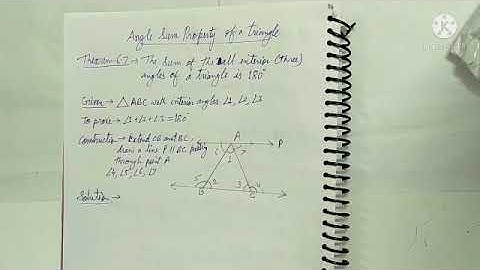 Angle Sum Property of a triangle
Theorem 6.7 → The Sum of The all interior (three)
angles of a triangle is 180°
Given → △ ABC with interior angles ∠1, ∠2, ∠3
To prove → ∠1+∠2+∠3=180°
Construction → Extend CB and BC,
draw a line P || BC passing
through point A
∠4, ∠5, ∠6, ∠7
Solution →
A
P
1
5
2
3
4
B
C